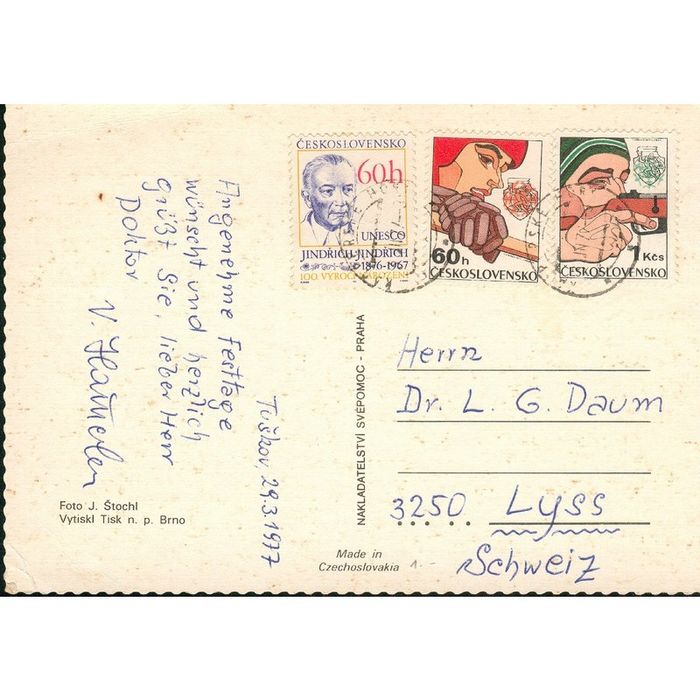 ČESKOSLOVENSKO
60h
UNESCO
JINDŘICH JINDŘICH
1876-1967
100. VÝROČÍ NAROZENÍ
60h
ČESKOSLOVENSKO
1 Kčs
ČESKOSLOVENSKO
Angenehme Festtage
wünscht und herzlich
grüßt Sie, lieber Herr
Doktor
V.
29.3.1977
NAKLADATELSTVÍ SVÉPOMOC - PRAHA
Herrn
Dr. L. G. Daum
3250 Lyss
Schweiz
Foto J. Štochl
Vytiskl Tisk n. p. Brno
Made in
Czechoslovakia
1.-